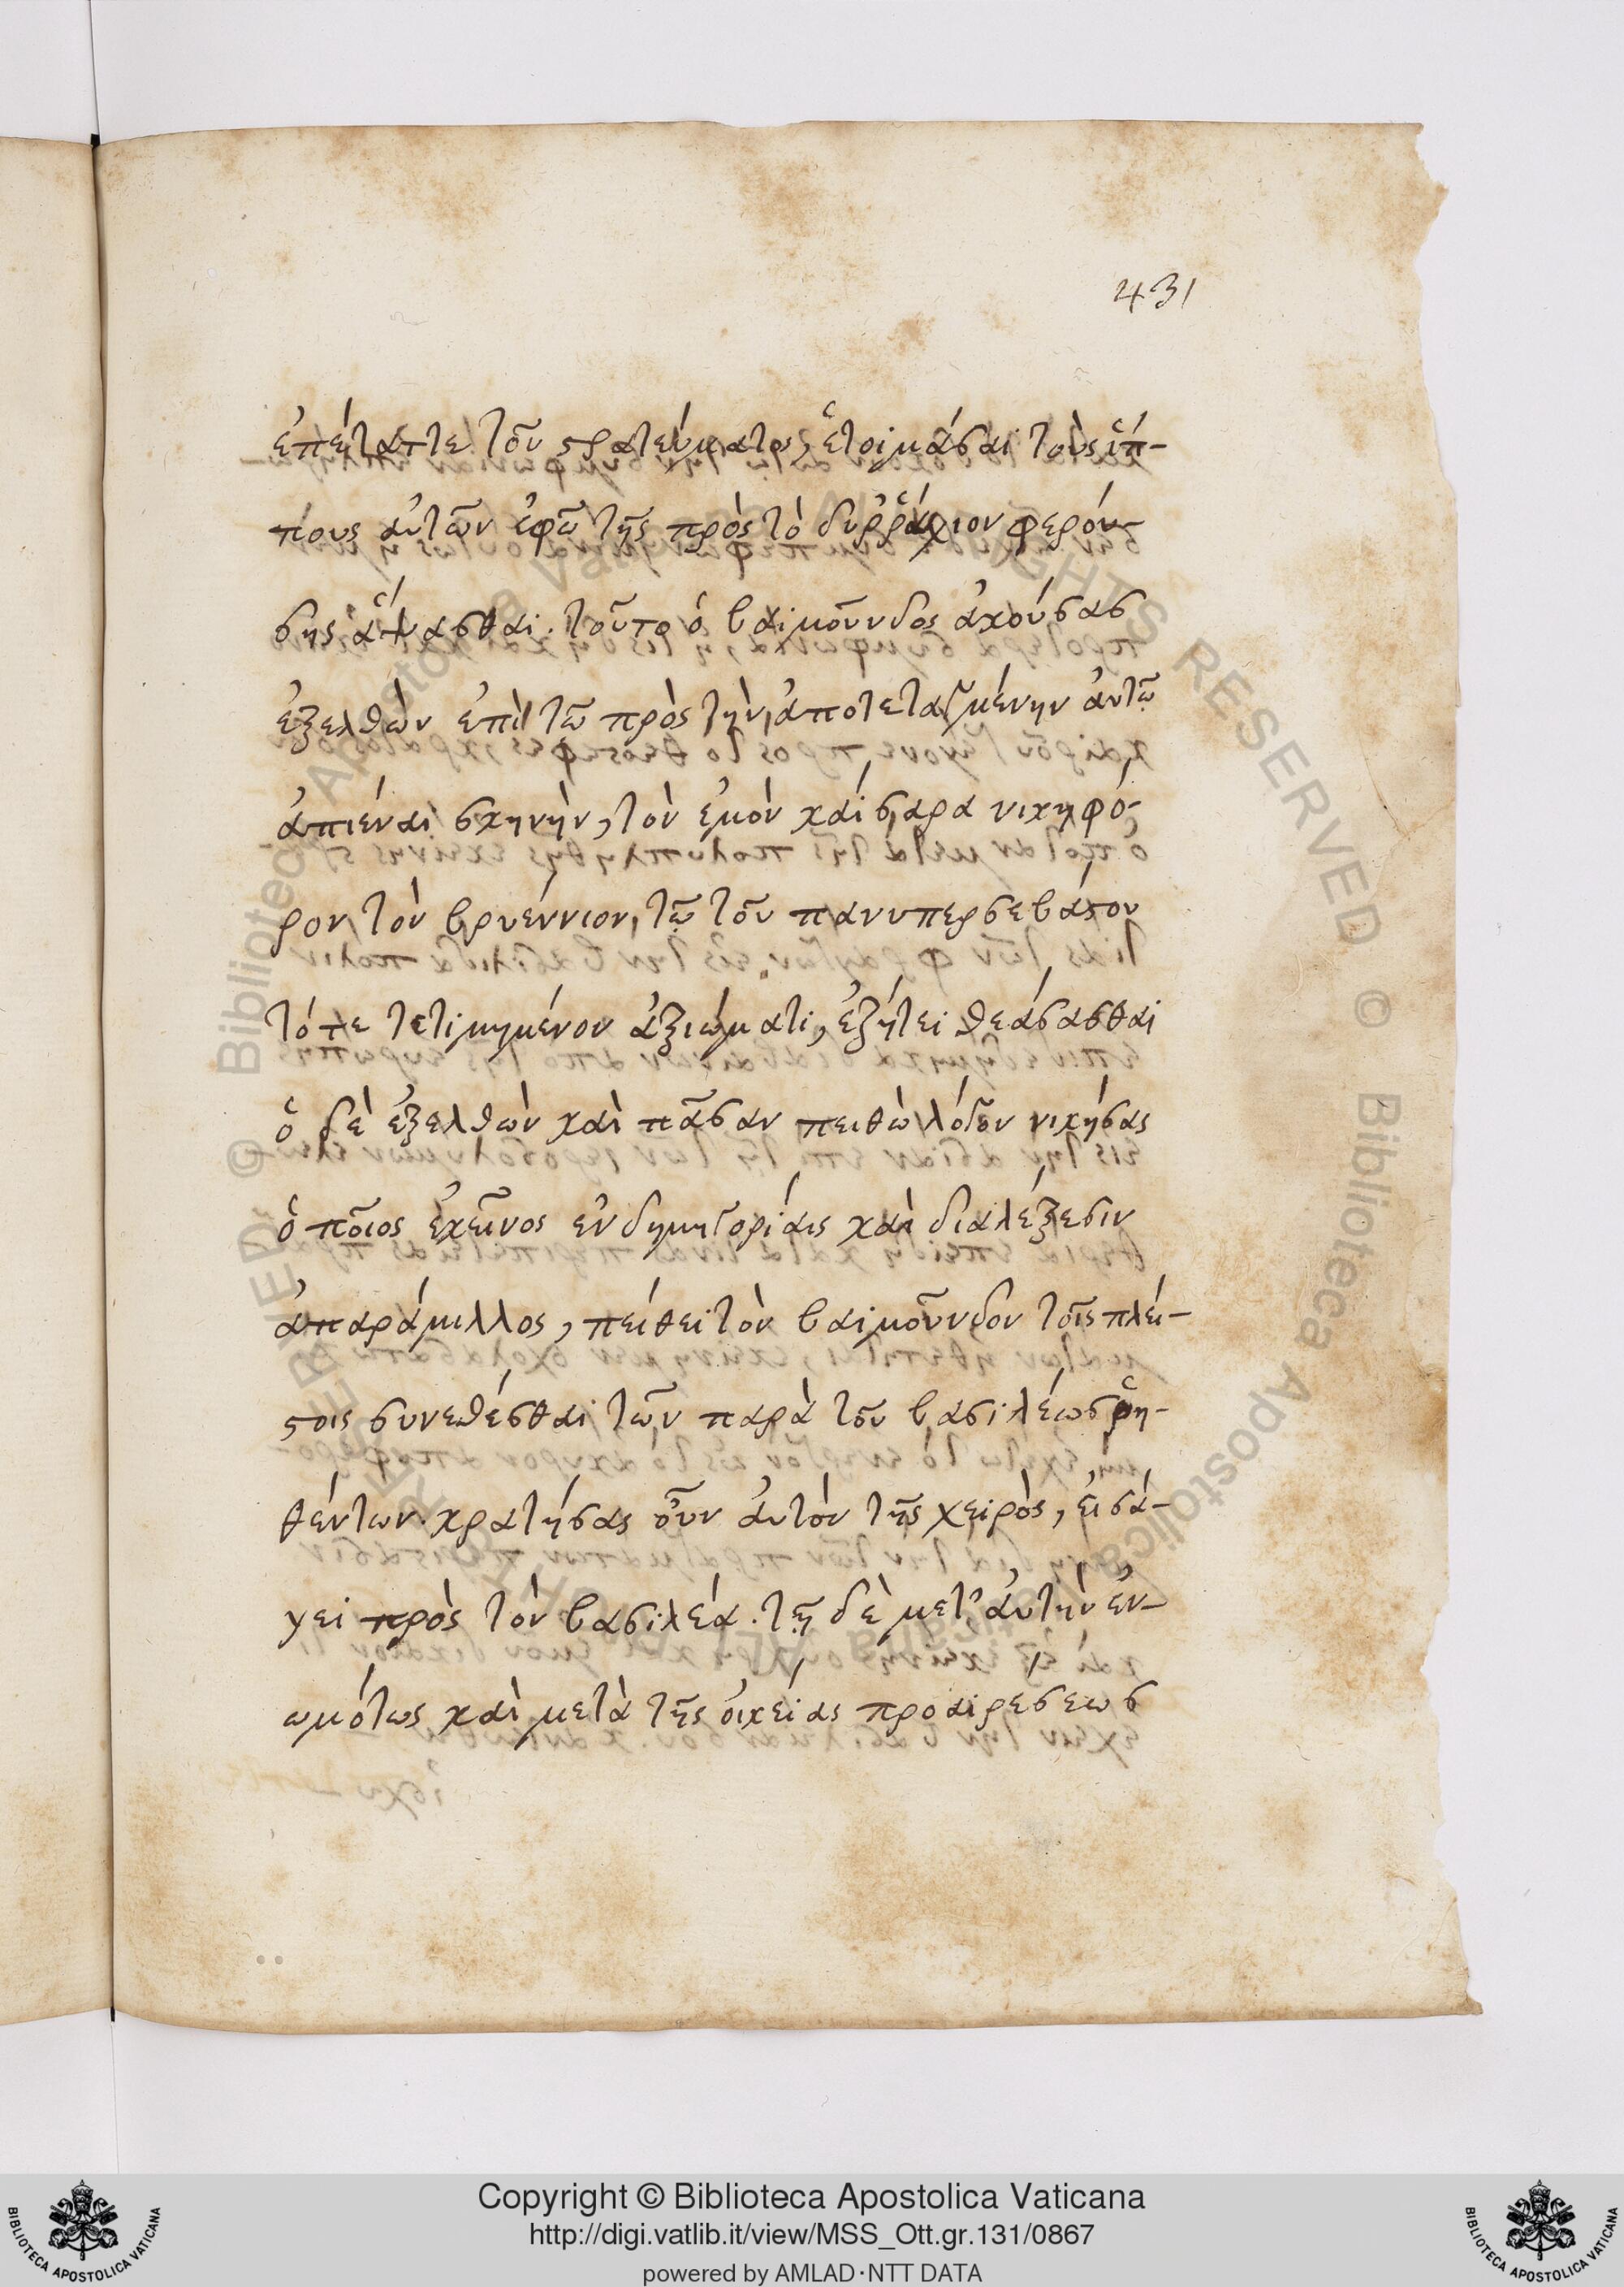 431
ἐπέταττε τοῦ στρατεύματος ἑτοιμάσαι τοὺς ἵπ-
πους αὐτῶν ἐφῶ τῆς πρὸς τὸ δυῤῥάχιον φερού-
σης ἅψασθαι. τοῦτο ὁ βαϊμοῦνδος ἀκούσας
ἐξελθὼν ἐπὶ τῶ πρὸς τὴν ἀποτεταγμένην αὐτῶ
ἀπιέναι σκηνὴν, τὸν ἐμὸν καίσαρα νικηφό-
ρον τὸν βρυέννιον, τῶ τοῦ πανυπερσεβάστου
τότε τετιμημένον ἀξιώματι, ἐζήτει θεάσασθαι
ὁ δὲ ἐξελθὼν καὶ πᾶσαν πειθὼ λόγου νικήσας
ὁποῖος ἐκεῖνος ἐν δημηγορίαις καὶ διαλέξεσιν
ἀπαράμιλλος, πείθει τὸν βαϊμοῦνδον τοῖς πλεί-
στοις συνεθέσθαι τῶν παρὰ τοῦ βασιλέως ῥη-
θέντων. κρατήσας οὖν αὐτὸν τῆς χειρὸς, εἰσά-
γει πρὸς τὸν βασιλέα. τῆ δὲ μετ' αὐτὴν ἐν-
ωμότως καὶ μετὰ τῆς οἰκείας προαιρέσεως
Copyright © Biblioteca Apostolica Vaticana
http://digi.vatlib.it/view/MSS_Ott.gr.131/0867
powered by AMLAD·NTT DATA